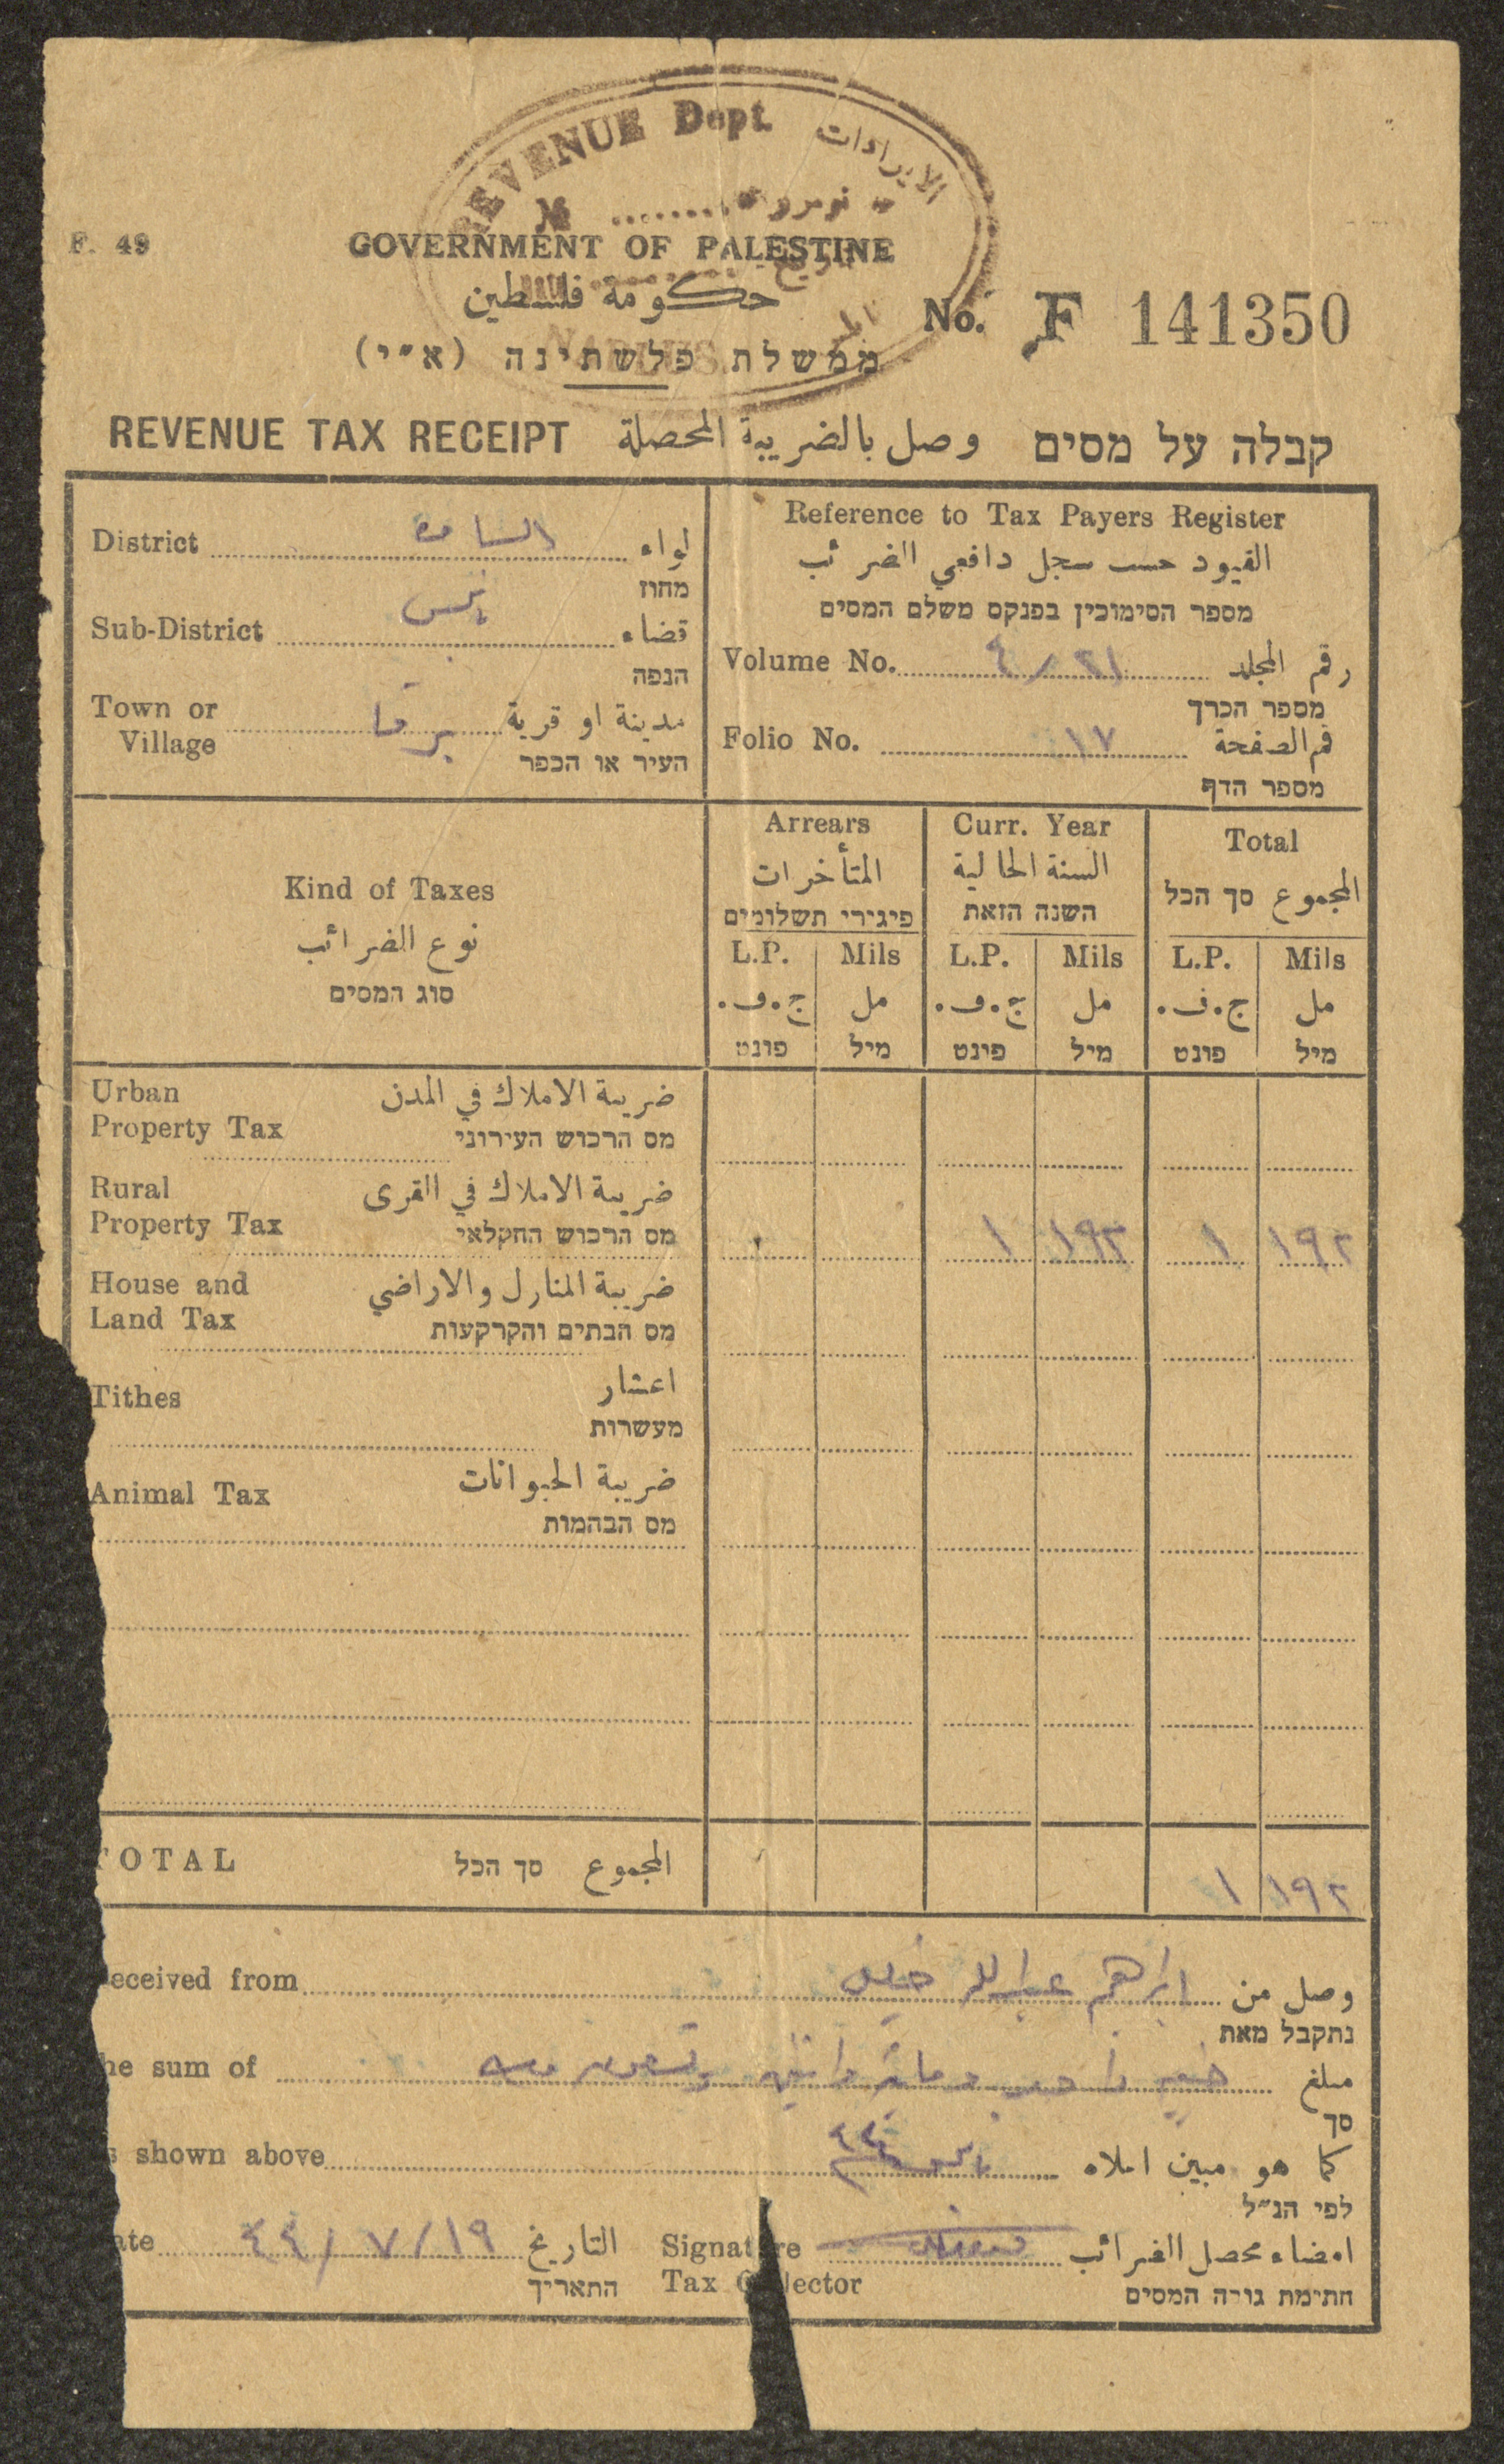 REVENUE Dept. الايرادات
نومرو ........ №
F. 49
GOVERNMENT OF PALESTINE
حكومة فلسطين
ממשלת פלשתינה (א״י)
No. F 141350
REVENUE TAX RECEIPT وصل بالضريبة المحصلة קבלה על מסים
District السامرة لواء
מחוז
Sub-District نابلس قضاء
הנפה
Town or Village برقا مدينة او قرية
העיר או הכפר
Reference to Tax Payers Register
القيود حسب سجل دافعي الضرائب
מספר הסימוכין בפנקס משלם המסים
Volume No. ٤/٢١ رقم المجلد
מספר הכרך
Folio No. ١٧ قم الصفحة
מספר הדף
Kind of Taxes
نوع الضرائب
סוג המסים
Arrears
المتأخرات
פיגירי תשלומים
Curr. Year
السنة الحالية
השנה הזאת
Total
المجموع סך הכל
L.P. Mils L.P. Mils L.P. Mils
ج.ف. مل ج.ف. مل ج.ف. مل
פונט מיל פונט מיל פונט מיל
Urban ضريبة الاملاك في المدن
Property Tax מס הרכוש העירוני
Rural ضريبة الاملاك في القرى
Property Tax מס הרכוש החקלאי
١ ١٩٢ ١ ١٩٢
House and ضريبة المنازل والاراضي
Land Tax מס הבתים והקרקעות
Tithes اعشار
מעשרות
Animal Tax ضريبة الحيوانات
מס הבהמות
TOTAL סך הכל المجموع
١ ١٩٢
eceived from ابراهيم عبد الله خليل وصل من
נתקבל מאת
he sum of جنيه واحد ومائة واثنين وتسعين مل مبلغ
סך
s shown above كما هو مبين اعلاه
לפי הנ״ל
ate ٤٤/٧/١٩ التاريخ
התאריך
Signature امضاء محصل الضرائب
Tax Collector חתימת גובה המסים